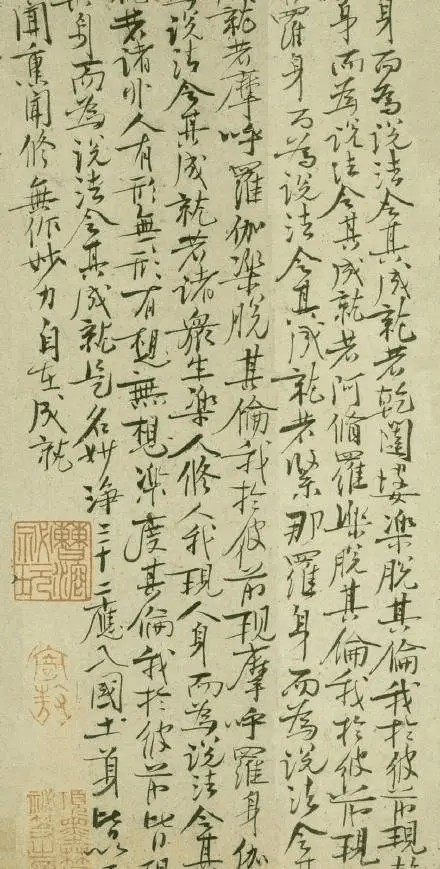 身而為說法令其成就若乾闥婆樂脫其倫我於彼前現乾
身而為說法令其成就若阿脩羅樂脫其倫我於彼前現
羅身而為說法令其成就若緊那羅身而為說法令其
就若摩呼羅伽樂脫其倫我於彼前現摩呼羅身伽
為說法令其成就若諸衆生樂人修人我現人身而為說法令其
若諸非人有形無形有想無想樂度其倫我於彼前皆現
身而為說法令其成就是名妙淨三十二應入國土身皆以
聞熏聞修無作妙力自在成就